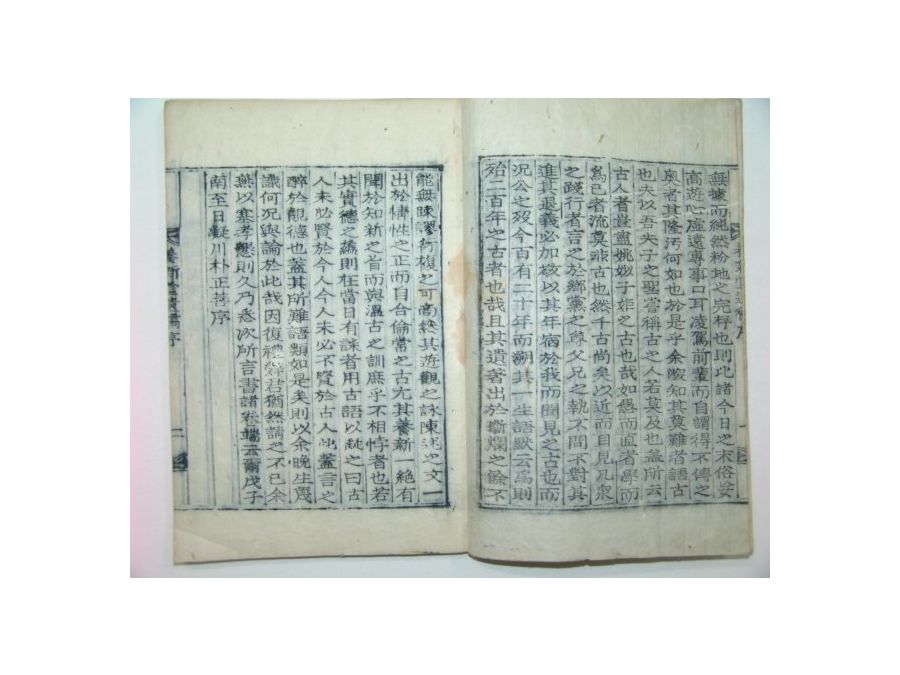 無據而純然粉地之完存也則比諸今日之末俗妄
高遊心虛遠專事口耳凌駕前輩而自謂得不傳之
奧者其隆汚何如也於是乎余晙知其莫難者語古
也夫以吾夫子之聖嘗稱古之人若莫及也盖所云
古人者豈盡姚姒子姬之古也哉如愚而直者學而
爲已者流莫非古也然千古尚矣以近而目見凡衆
之踐行者言之於鄕黨之尊父兄之執不問不對其
進其退義必加敬以其年宿於我而聞見之古也而
況公之歿今百有二十年而朔其一生語默云爲則
殆二百年之古者也哉且其遺著出於斷爛之餘不
能無疎謬何復之可高然其遊觀之詠陳述之文一
出於情性之正而自合倫常之古尤其養新一絶有
聞於知新之旨而與溫古之訓庶乎不相悖者也若
其實德之蘊則在當日有誄者用古語以銘之曰古
人未必賢於今人今人未必不賢於古人此蓋言之
醉於觀德也蓋其所難語類如是矣則以余晩生蔑
識何況與論於此哉因復禮群君猶然請之不已余
無以塞孝懇則久乃悉次所言書諸卷端云爾戊子
南至日凝川朴正善序
養新堂實稿序